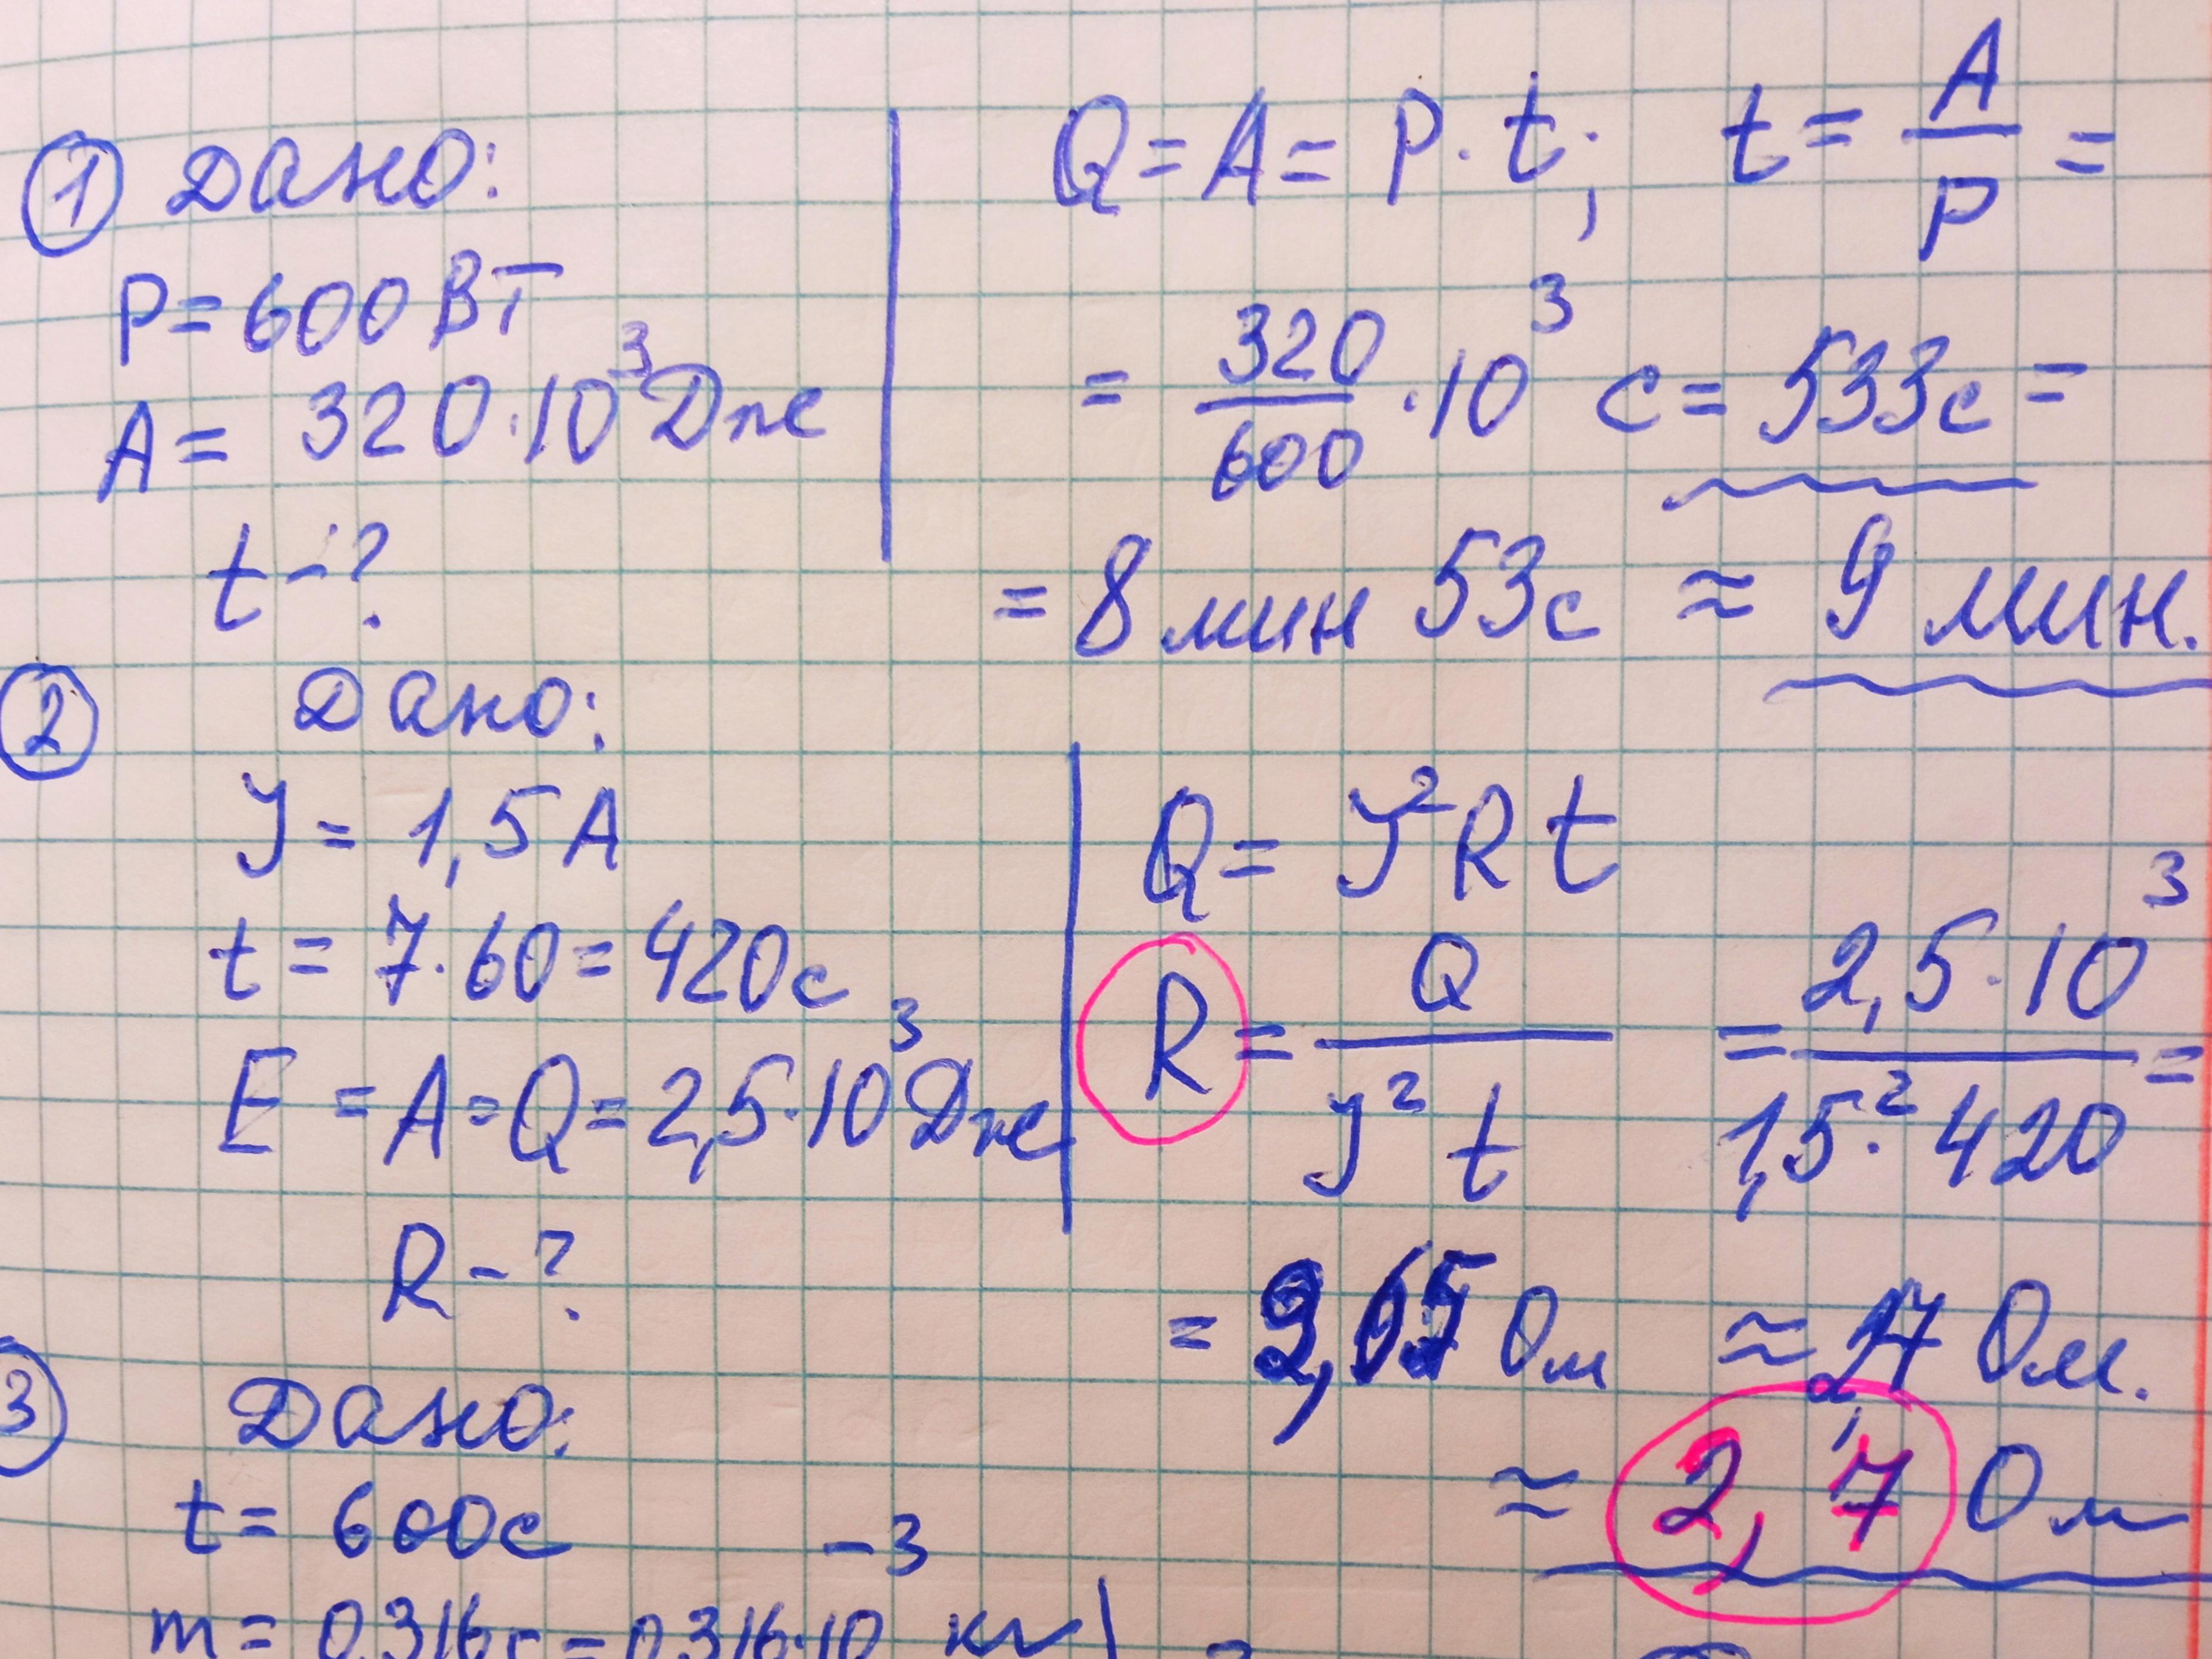 ① Дано:
P = 600 Вт
A = 320·10³ Дж
t - ?
Q = A = P·t; t = A/P =
= 320/600 ·10³ с = 533 с =
= 8 мин 53 с ≈ 9 мин.
② Дано:
J = 1,5 A
t = 7·60 = 420 с
E = A = Q = 2,5·10³ Дж
R - ?
Q = J² R t
R = Q/J² t = 2,5·10³/1,5²·420 =
= 2,65 Ом ≈ 2,7 Ом.
≈ 2,7 Ом
③ Дано:
t = 600 с
m = 0,316 г = 0,316·10⁻³ кг